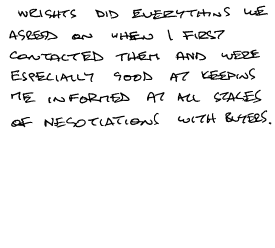 WRIGHTS DID EVERYTHING WE
AGREED ON WHEN I FIRST
CONTACTED THEM AND WERE
ESPECIALLY GOOD AT KEEPING
ME INFORMED AT ALL STAGES
OF NEGOTIATIONS WITH BUYERS.